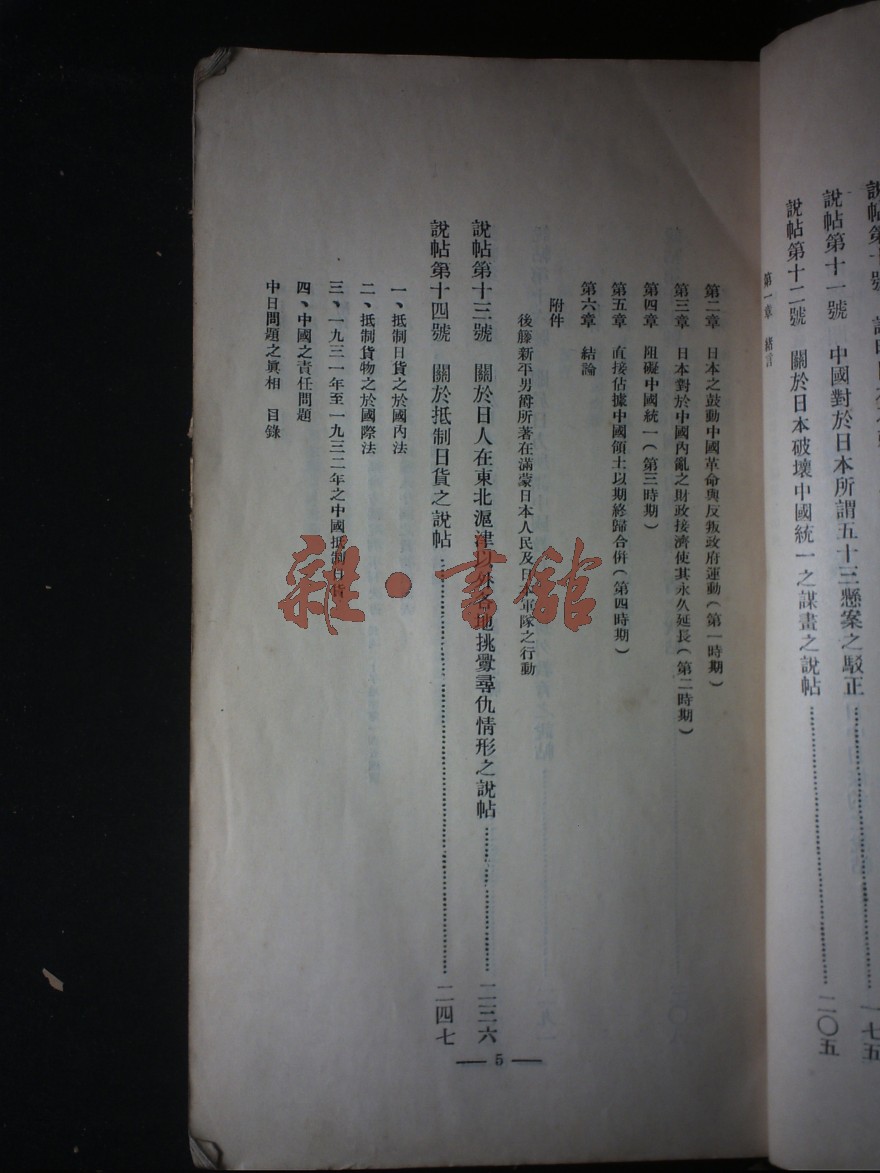 說帖第十一號　中國對於日本所謂五十三懸案之駁正……一七五
說帖第十二號　關於日本破壞中國統一之謀畫之說帖……二〇五
第一章　緒言
第二章　日本之鼓動中國革命與反叛政府運動（第一時期）
第三章　日本對於中國內亂之財政接濟使其永久延長（第二時期）
第四章　阻礙中國統一（第三時期）
第五章　直接佔據中國領土以期終歸合併（第四時期）
第六章　結論
附件
後籐新平男爵所著在滿蒙日本人民及日本軍隊之行動
說帖第十三號　關於日人在東北滬津以外各地挑釁尋仇情形之說帖……二三六
說帖第十四號　關於抵制日貨之說帖……二四七
一、抵制日貨之於國內法
二、抵制貨物之於國際法
三、一九三一年至一九三二年之中國抵制日貨
四、中國之責任問題
中日問題之眞相　目錄
— 5 —
雜·書館